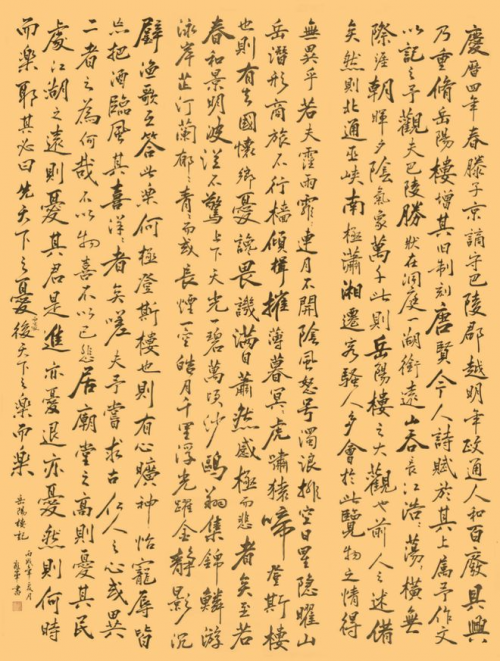 慶曆四年春滕子京謫守巴陵郡越明年政通人和百廢具興
乃重脩岳陽樓增其旧制刻唐賢今人詩賦於其上属予作文
以記之予觀夫巴陵勝狀在洞庭一湖銜遠山吞長江浩蕩橫無
際涯朝暉夕陰氣象萬千此則岳陽樓之大觀也前人之述備
矣然則北通巫峽南極瀟湘遷客騷人多會於此覽物之情得
無異乎若夫霪雨霏々連月不開陰風怒号濁浪排空日星隐曜山
岳潛形商旅不行檣傾楫摧薄暮冥々虎嘯猿啼登斯樓
也則有去國懷鄉憂讒畏譏滿目蕭然感極而悲者矣至若
春和景明波瀾不驚上下天光一碧萬頃沙鷗翔集錦鱗游
泳岸芷汀蘭郁々青々而或長煙一空皓月千里浮光躍金静影沉
璧漁歌互答此樂何極登斯樓也則有心曠神怡寵辱皆
忘把酒臨風其喜洋々者矣嗟夫予嘗求古仁人之心或異
二者之為何哉不以物喜不以己悲居廟堂之高則憂其民
處江湖之遠則憂其君是進亦憂退亦憂然則何時
而樂耶其必曰先天下之憂而憂後天下之樂而樂
岳陽樓記